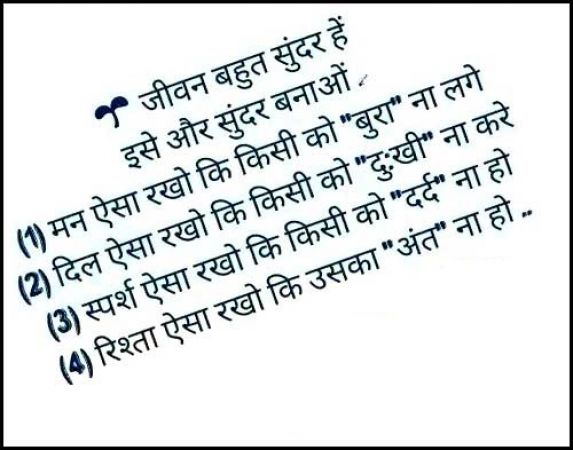 जीवन बहुत सुंदर हैं
इसे और सुंदर बनाओं .
(1) मन ऐसा रखो कि किसी को "बुरा" ना लगे
(2) दिल ऐसा रखो कि किसी को "दुःखी" ना करे
(3) स्पर्श ऐसा रखो कि किसी को "दर्द" ना हो
(4) रिश्ता ऐसा रखो कि उसका "अंत" ना हो ..